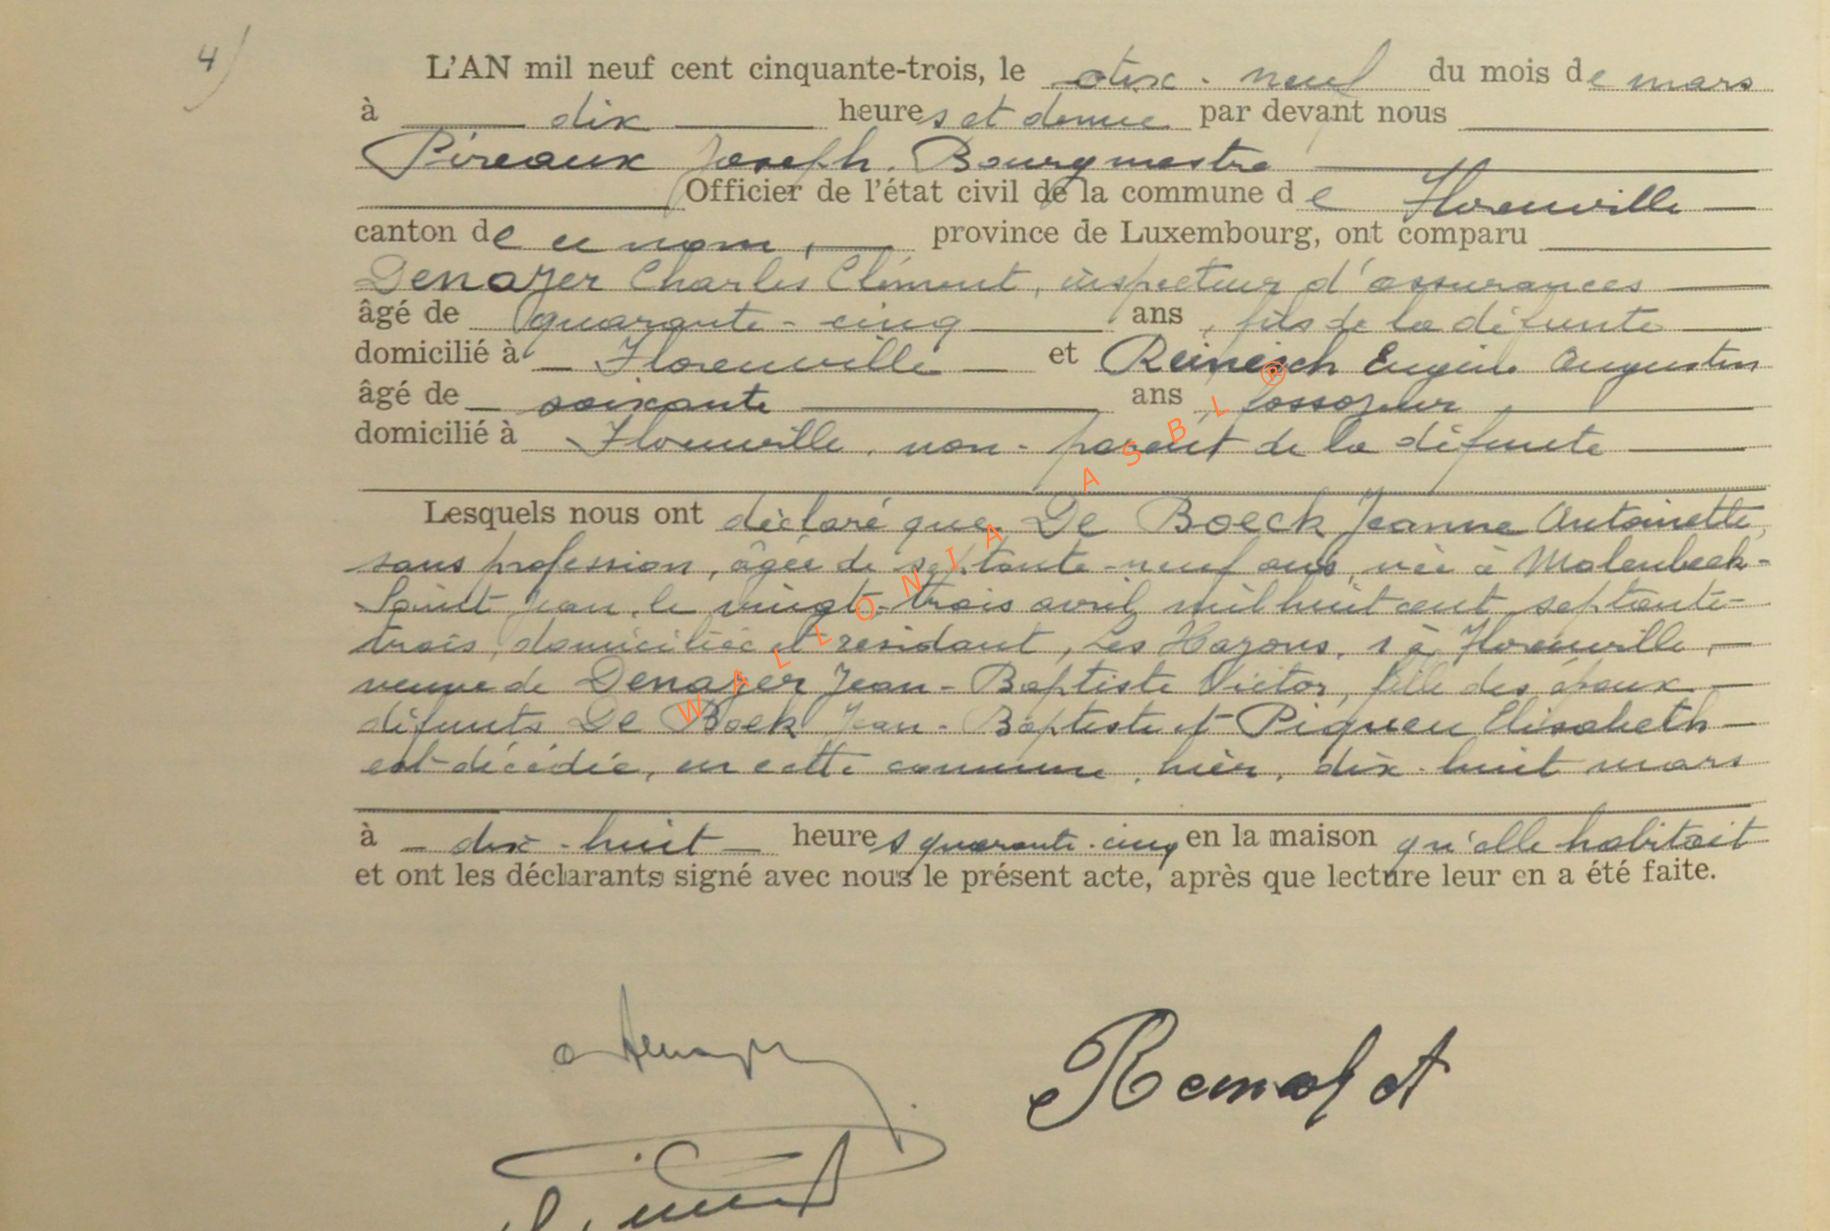 4)
L'AN mil neuf cent cinquante-trois, le dix-neuf du mois de mars
à dix heures et demie par devant nous
Pireaux Joseph, Bourgmestre
Officier de l'état civil de la commune de Florenville
canton de ce nom, province de Luxembourg, ont comparu
Denayer Charles Clément, inspecteur d'assurances
âgé de quarante-cinq ans, fils de la défunte
domicilié à Florenville et Reinesch Eugène Augustin
âgé de soixante ans, fossoyeur,
domicilié à Florenville, non-parent de la défunte
Lesquels nous ont déclaré que De Boeck Jeanne Antoinette,
sans profession, âgée de septante-neuf ans, née à Molenbeek-
Saint Jean, le vingt-trois avril mil huit cent septante-
trois, domiciliée et résidant, Les Hayons, 1 à Florenville,
veuve de Denayer Jean-Baptiste Victor, fille des époux
défunts De Boek Jean-Baptiste et Piqueu Elisabeth
est décédée, en cette commune, hier, dix-huit mars
à dix-huit heures quarante-cinq en la maison qu'elle habitait
et ont les déclarants signé avec nous le présent acte, après que lecture leur en a été faite.
WALLONIA ASBL ®